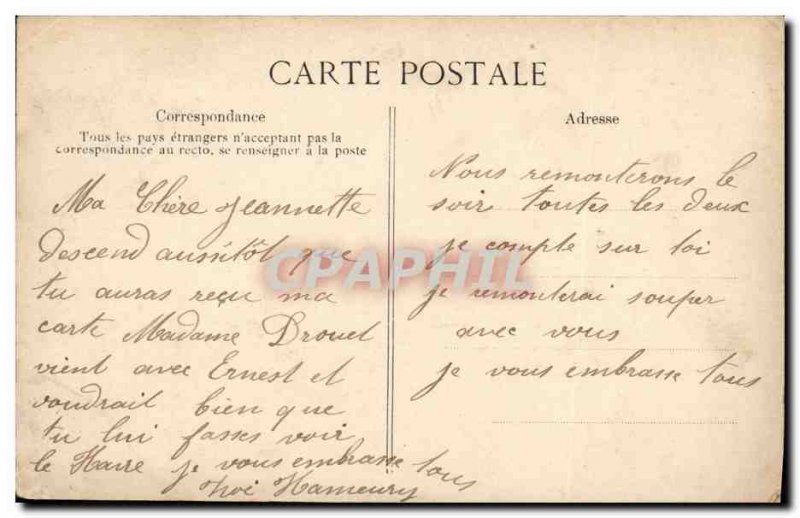 CARTE POSTALE
Correspondance
Tous les pays étrangers n'acceptent pas la
correspondance au recto, se renseigner à la poste
Ma Chère Jeannette
descend aussitôt que
tu auras reçu ma
carte Madame Drouet
vient avec Ernest et
voudrait bien que
tu lui fasses voir
le Havre je vous embrasse tous
Hameury
Adresse
Nous remonterons le
soir toutes les deux
je compte sur toi
je remonterai souper
avec vous
je vous embrasse tous
CPAPHIL